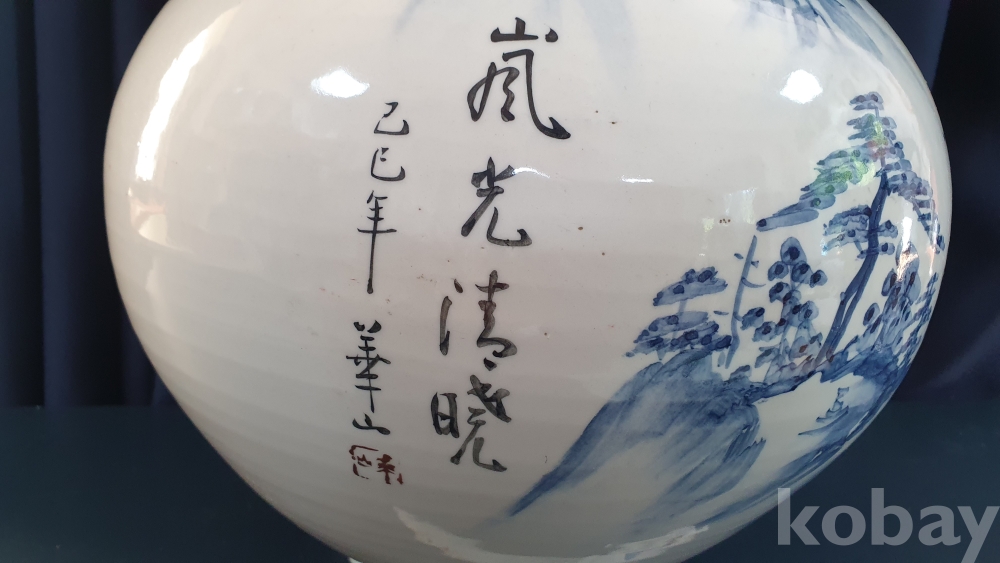 嵐光清曉
己巳年 華山
kobay